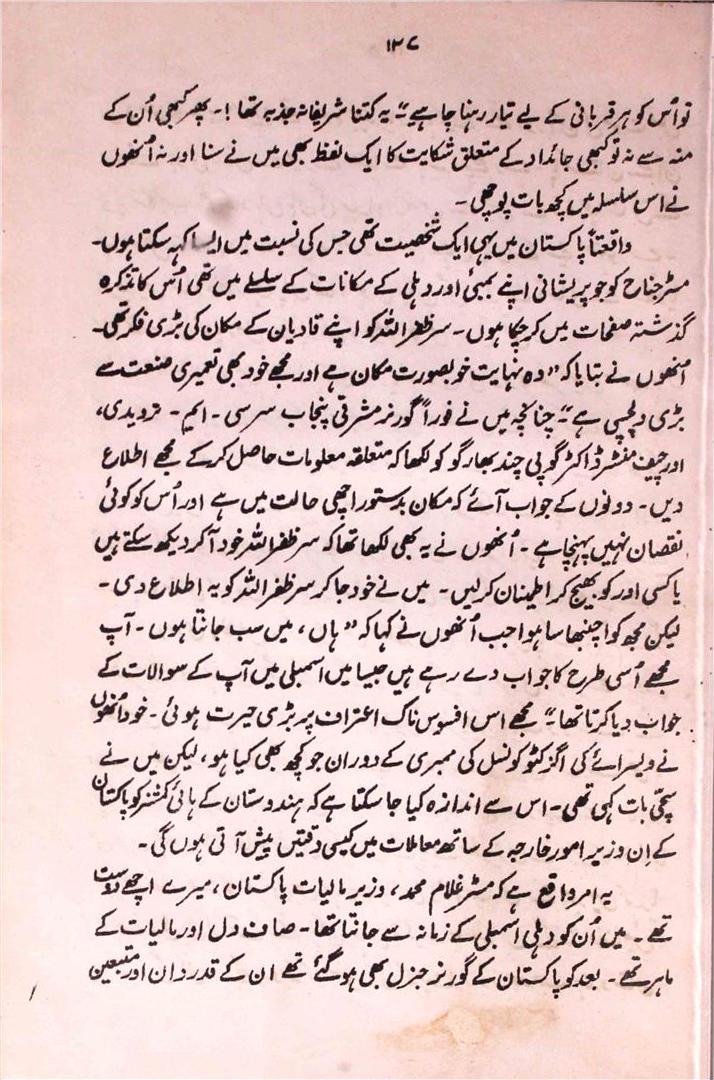 ۱۲۷
تو اُس کو ہر قربانی کے لیے تیار رہنا چاہیے“ یہ کتنا شریفانہ جذبہ تھا !۔ پھر کبھی اُن کے
منہ سے نہ تو کبھی جائداد کے متعلق شکایت کا ایک لفظ بھی میں نے سنا اور نہ اُنھوں
نے اس سلسلہ میں کچھ بات پوچھی ۔
واقعتاً پاکستان میں یہی ایک شخصیت تھی جس کی نسبت میں ایسا کہہ سکتا ہوں۔
مسٹر جناح کو جو پریشانی اپنے بمبئی اور دہلی کے مکانات کے سلسلے میں تھی اُس کا تذکرہ
گذشتہ صفحات میں کر چکا ہوں ۔ سر ظفر اللہ کو اپنے قادیان کے مکان کی بڑی فکر تھی۔
اُنھوں نے بتایا کہ ”وہ نہایت خوبصورت مکان ہے اور مجھے خود بھی تعمیری صنعت سے
بڑی دلچسپی ہے“ چنانچہ میں نے فوراً گورنر مشرقی پنجاب سر سی ۔ ایم ۔ تردیدی،
اور چیف منسٹر ڈاکٹر گوپی چند بھارگو کو لکھا کہ متعلقہ معلومات حاصل کر کے مجھے اطلاع
دیں ۔ دونوں کے جواب آئے کہ مکان بدستور اچھی حالت میں ہے اور اُس کو کوئی
نقصان نہیں پہنچا ہے ۔ اُنھوں نے یہ بھی لکھا تھا کہ سر ظفر اللہ خود آ کر دیکھ سکتے ہیں
یا کسی اور کو بھیج کر اطمینان کر لیں ۔ میں نے خود جا کر سر ظفر اللہ کو یہ اطلاع دی ۔
لیکن مجھ کو اچنبھا سا ہوا جب اُنھوں نے کہا کہ ”ہاں ، میں سب جانتا ہوں ۔ آپ
مجھے اُسی طرح کا جواب دے رہے ہیں جیسا میں اسمبلی میں آپ کے سوالات کے
جواب دیا کرتا تھا“ مجھے اس افسوس ناک اعتراف پر بڑی حیرت ہوئی ۔ خود اُنھوں
نے ویسرائے کی اگزکٹو کونسل کی ممبری کے دوران جو کچھ بھی کیا ہو ، لیکن میں نے
سچی بات کہی تھی ۔ اس سے اندازہ کیا جا سکتا ہے کہ ہندوستان کے ہائی کمشنر کو پاکستان
کے اِن وزیر امور خارجہ کے ساتھ معاملات میں کیسی دقتیں پیش آتی ہوں گی ۔
یہ امر واقع ہے کہ مسٹر غلام محمد ، وزیر مالیات پاکستان ، میرے اچھے دوست
تھے ۔ میں اُن کو دہلی اسمبلی کے زمانہ سے جانتا تھا ۔ صاف دل اور مالیات کے
ماہر تھے ۔ بعد کو پاکستان کے گورنر جنرل بھی ہو گئے تھے ان کے قدر دان اور متبعین